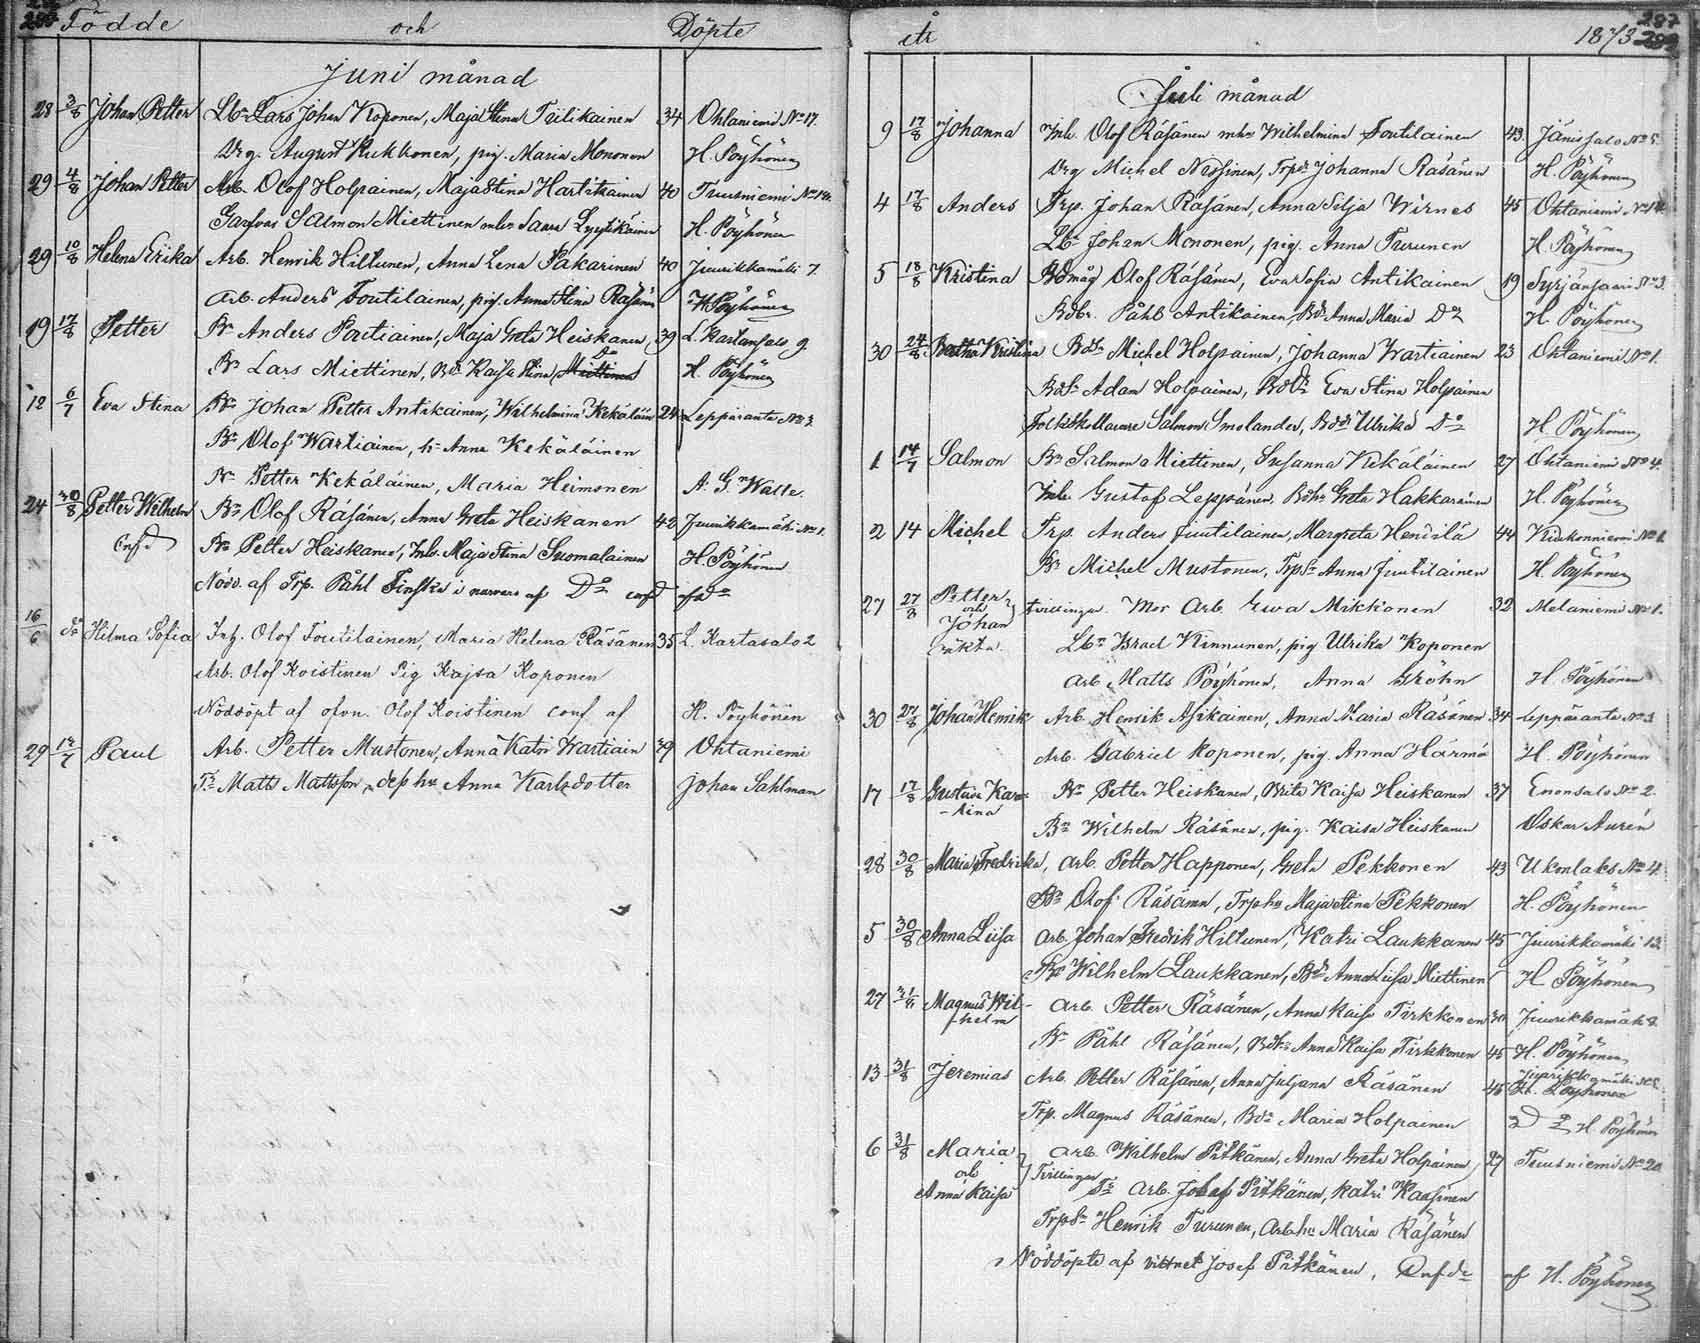 Födde och Döpte
Juni månad
28 3/8 Johan Petter Lbr Lars Johan Koponen, Maja Stina Tiilikainen 34 Ohtaniemi No 17.
Drg. August Kukkonen, pig. Maria Mononen H. Pöyhönen
29 4/8 Johan Petter Arb. Olof Holpainen, Maja Stina Hartikainen 40 Tuusniemi No
Salmon Miettinen Lyytikäinen H. Pöyhönen
29 10/8 Helena Erika Arb. Henrik Hiltunen, Anna Lena Pakarinen 40 Juurikkamäki 7.
Arb. Anders Toutilainen, pig. Anna Stina Räsänen H. Pöyhönen
19 17/8 Petter Bn Anders Partiainen, Maja Greta Heiskanen 39 L. Kartansalo 9.
Bn Lars Miettinen, Bdr Kaisa Stina Do H. Pöyhönen
12 6/7 Eva Stina Bn Johan Petter Antikainen, Wilhelmina Kekäläin 24 Leppäranta No 3.
Bn Olof Wartiainen, h. Anna Kekäläinen
Bn Petter Kekäläinen, Maria Heimonen A. G. Walle.
24 30/8 Petter Wilhelm Bn Olof Räsänen, Anna Greta Heiskanen 42 Juurikkamäki No 1.
Confd Bn Petter Heiskanen, Inh. Maja Stina Suomalainen H. Pöyhönen
Nödd. af Trp. Påhl Tirskti i närvaro af Do conf af do
16/6 do Hilma Sofia Inh. Olof Toutilainen, Maria Helena Räsänen 35 L. Kartasalo 2
Arb. Olof Koistinen Pig Kajsa Koponen
Nöddöpt af ofvn. Olof Koistinen conf af H. Pöyhönen
29 Paul Arb. Petter Mustonen, Anna Katri Wartiain 39 Ohtaniemi
Matts Mattsson, dess hu Anna Karlsdotter Johan Sahlman
år 1873 287
Juli månad
9 17/8 Johanna Inh. Olof Räsänen mhu Wilhelmina Toutilainen 43 Jänissalo No 5.
Drg Michel Nissinen, Trpdr Johanna Räsänen H. Pöyhönen
4 17/8 Anders Trp. Johan Räsänen, Anna Silja Wirnes 45 Ohtaniemi No 14.
Lbr Johan Mononen, pig. Anna Turunen H. Pöyhönen
5 18/8 Kristina Bdmåg Olof Räsänen, Eva Sofia Antikainen 19 Syrjänsaari No 3.
Bdbr. Påhl Antikainen, Bdr Anna Maria Do H. Pöyhönen
30 24/8 Kristina Bdsn Michel Holpainen, Johanna Wartiainen 23 Ohtaniemi No 1.
Bdsn Adam Holpainen, Bddr Eva Stina Holpainen
Salmon Smolander, Bddr Ulrika Do H. Pöyhönen
1 14/7 Salmon Bn Salmon Miettinen, Susanna Kekäläinen 27 Ohtaniemi No 4.
Inh. Gustaf Leppänen, Bdhu Greta Hakkarainen H. Pöyhönen
2 14 Michel Trp. Anders Juutilainen, Margreta Hendilä 44 Kiukonniemi No 1.
Bn Michel Mustonen, Trpdr Anna Juutilainen H. Pöyhönen
27 27/8 Petter och Johan oäkta tvillingar. Mor Arb. Ewa Mikkonen 32 Melaniemi No 1.
Lbr Israel Kinnunen, pig Ulrika Koponen
Arb Matts Pöyhönen, Anna Gröhn H Pöyhönen
30 27/8 Johan Henrik Arb. Henrik Asikainen, Anna Maria Räsänen 34 Leppäranta No 3
Arb. Gabriel Koponen, pig Anna Härmä H. Pöyhönen
17 17/8 Gustava Karo-lina Bn Petter Heiskanen, Brita Kaisa Heiskanen 37 Enonsalo No 2.
Bn Wilhelm Räsänen, pig. Kaisa Heiskanen Oskar Aurén
28 30/8 Maria Fredrika, Arb. Petter Happonen, Greta Pekkonen 43 Ukonlaks No 4.
Bn Olof Räsänen, Trphu Maja Stina Pekkonen H. Pöyhönen
5 30/8 Anna Liisa Arb. Johan Fredrik Hiltunen, Katri Laukkanen 45 Juurikkamäki 12.
Bn Wilhelm Laukkanen, Bdr Anna Luisa Miettinen H Pöyhönen
27 31/8 Magnus Wil-helm Arb. Petter Räsänen, Anna Kaisa Tirkkonen 30 Juurikkamäki 8.
Bn Påhl Räsänen, Bdhu Anna Kaisa Tirkkonen 45 H. Pöyhönen
13 31/8 Jeremias Arb. Petter Räsänen, Anna Juljana Räsänen 46 Juurikkamäki No 8.
Trp. Magnus Räsänen, Bdr Maria Holpainen Do H Pöyhönen
6 31/8 Maria och Anna Kaisa Tvillingar Arb. Wilhelm Pitkänen, Anna Greta Holpainen 27 Tuusniemi No 20
Arb. Josef Pitkänen, Katri Kaasinen
Trpsn Henrik Turunen, Arb.hu Maria Räsänen
Nöddöpte af vittnet Josef Pitkänen, Confde af H. Pöyhönen